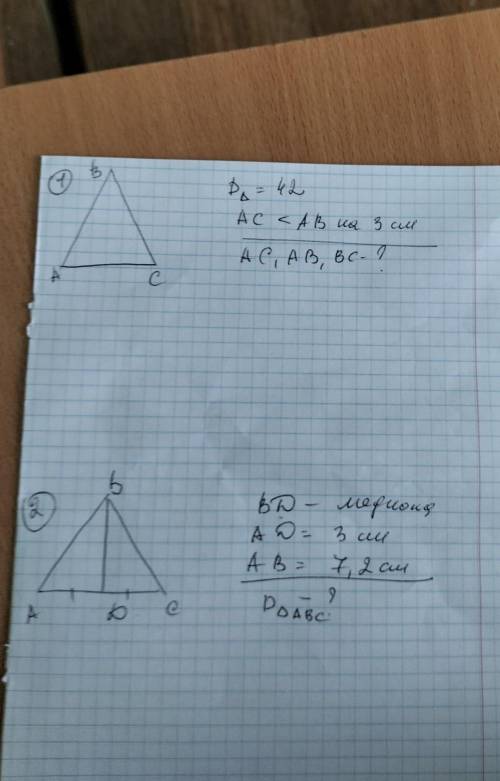 1
B
A
C
P△ = 42
AC < AB на 3 см
AC, AB, BC - ?
2
B
A
D
C
BD - медиана
AD = 3 см
AB = 7,2 см
P△ABC - ?